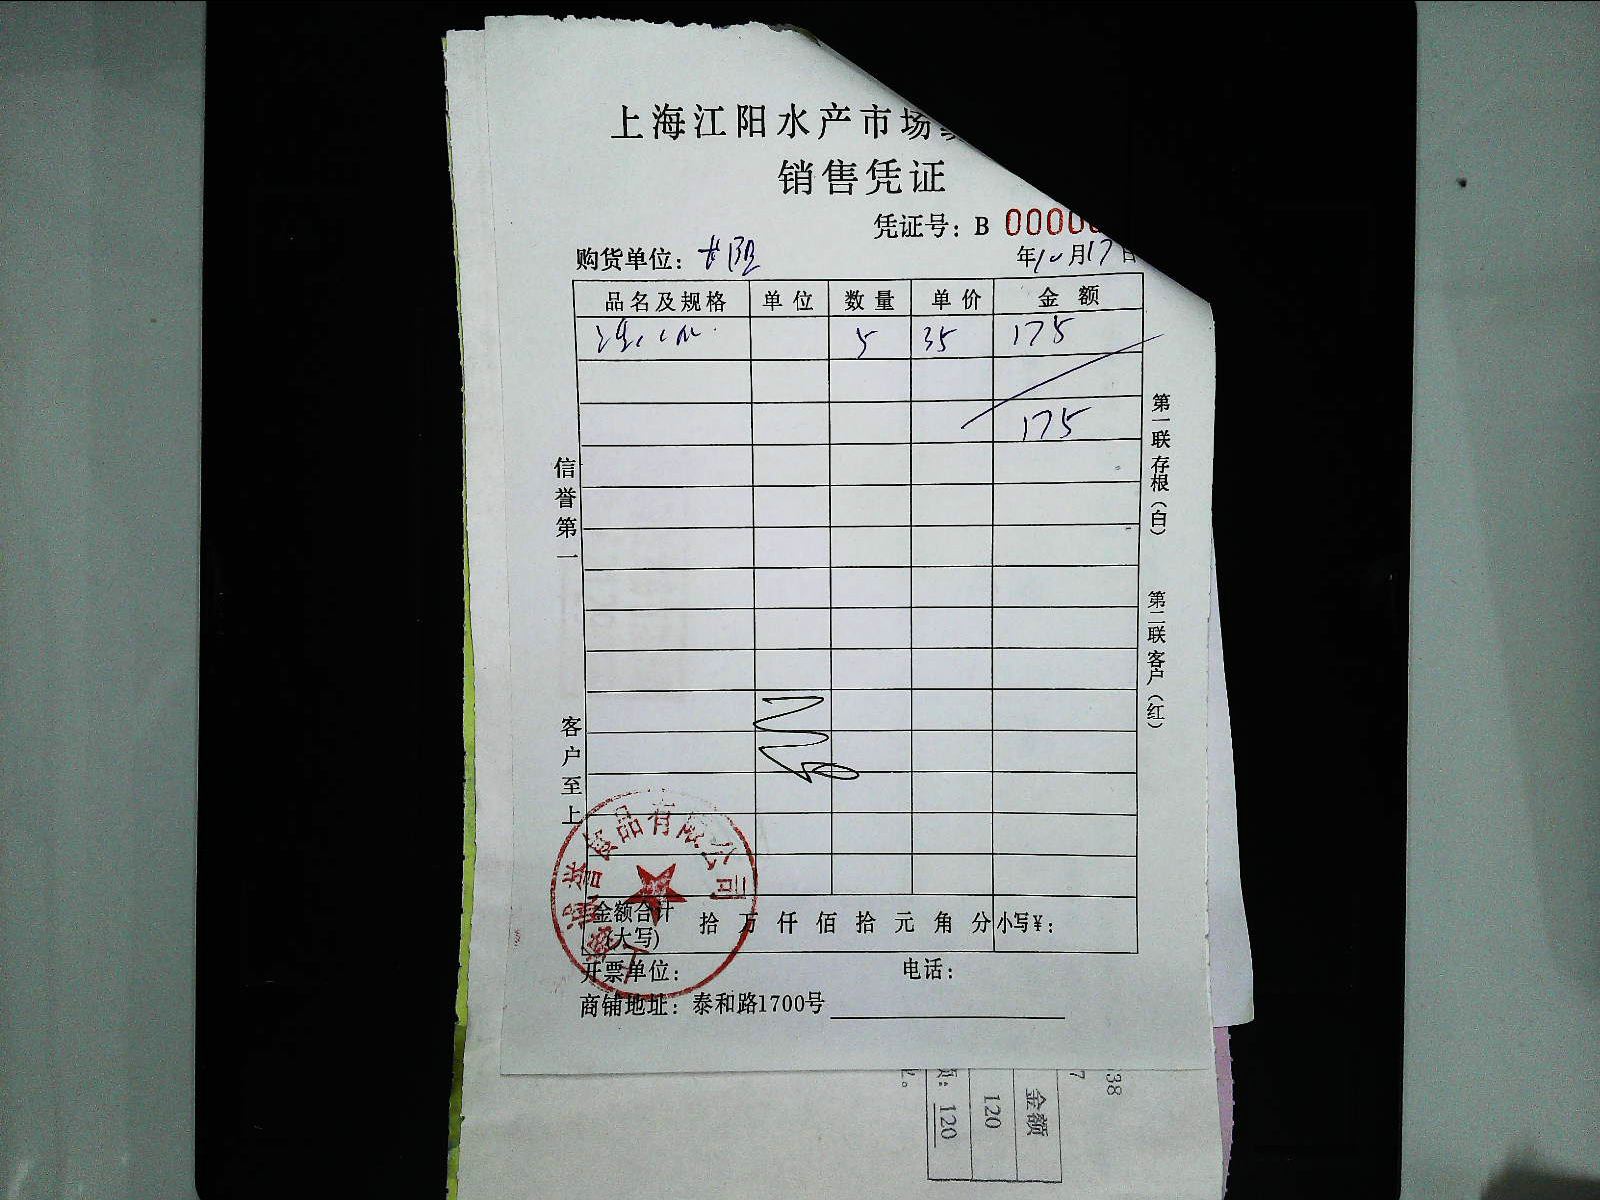 上海江阳水产市场
销售凭证
凭证号：B 0000
购货单位：
年10月17日
品名及规格 单位 数量 单价 金额
5 35 175
175
信誉第一
客户至上
第一联 存根（白）
第二联 客户（红）
食品有限公司
金额合计
(大写)
拾 万 仟 佰 拾 元 角 分 小写¥：
开票单位：
电话：
商铺地址：泰和路1700号
38
7
金额
120
额：120